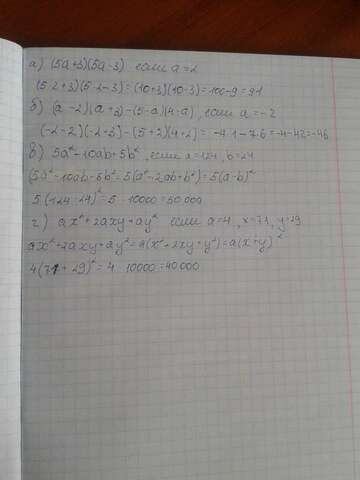 а) (5a+3)(5a-3) если a=2
(5·2+3)(5·2-3)=(10+3)(10-3)=100-9=91
б) (a-2)(a+3)-(5-a)(4-a), если a=-2
(-2-2)(-2+3)-(5+2)(4+2)= -4·1-7·6=-4-42=-46
в) 5a²-10ab+5b², если a=124, b=24
(5a²-10ab-5b²=5(a²-2ab+b²)=5(a-b)²
5(124-24)²=5·10000=50000
г) ax²+2axy+ay² если a=4, x=71, y=29
ax²+2axy+ay²=a(x²+2xy+y²)=a(x+y)²
4(71+29)²=4·10000=40000